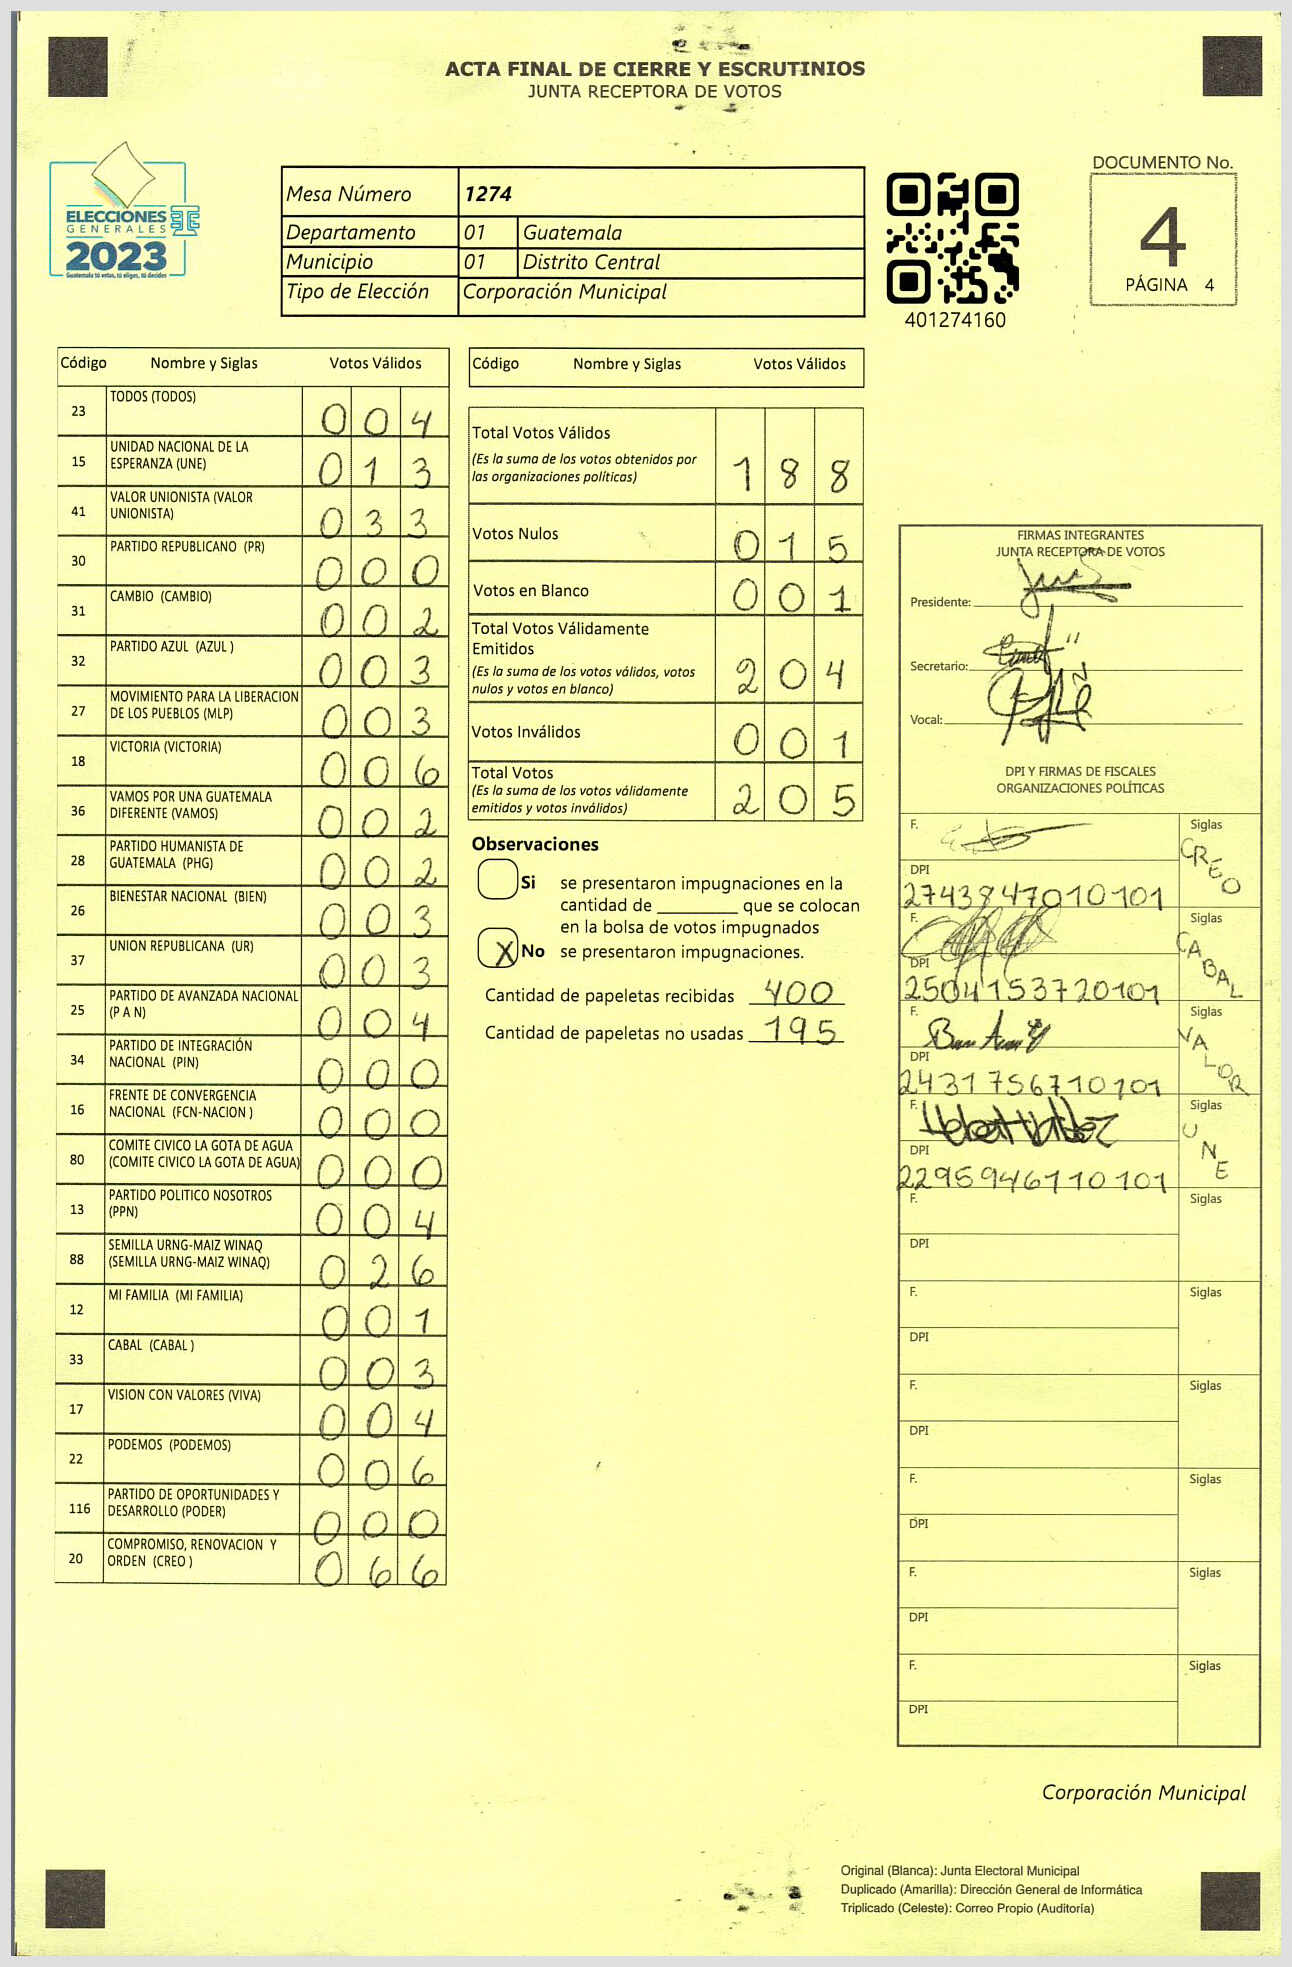 ACTA FINAL DE CIERRE Y ESCRUTINIOS
JUNTA RECEPTORA DE VOTOS
ELECCIONES
GENERALES
2023
Guatemala tú votas, tú eliges, tú decides
Mesa Número 1274
Departamento 01 Guatemala
Municipio 01 Distrito Central
Tipo de Elección Corporación Municipal
401274160
DOCUMENTO No.
4
PÁGINA 4
Código Nombre y Siglas Votos Válidos
23 TODOS (TODOS) 0 0 4
15 UNIDAD NACIONAL DE LA
ESPERANZA (UNE) 0 1 3
41 VALOR UNIONISTA (VALOR
UNIONISTA) 0 3 3
30 PARTIDO REPUBLICANO (PR) 0 0 0
31 CAMBIO (CAMBIO) 0 0 2
32 PARTIDO AZUL (AZUL ) 0 0 3
27 MOVIMIENTO PARA LA LIBERACION
DE LOS PUEBLOS (MLP) 0 0 3
18 VICTORIA (VICTORIA) 0 0 6
36 VAMOS POR UNA GUATEMALA
DIFERENTE (VAMOS) 0 0 2
28 PARTIDO HUMANISTA DE
GUATEMALA (PHG) 0 0 2
26 BIENESTAR NACIONAL (BIEN) 0 0 3
37 UNION REPUBLICANA (UR) 0 0 3
25 PARTIDO DE AVANZADA NACIONAL
(P A N) 0 0 4
34 PARTIDO DE INTEGRACIÓN
NACIONAL (PIN) 0 0 0
16 FRENTE DE CONVERGENCIA
NACIONAL (FCN-NACION ) 0 0 0
80 COMITE CIVICO LA GOTA DE AGUA
(COMITE CIVICO LA GOTA DE AGUA) 0 0 0
13 PARTIDO POLITICO NOSOTROS
(PPN) 0 0 4
88 SEMILLA URNG-MAIZ WINAQ
(SEMILLA URNG-MAIZ WINAQ) 0 2 6
12 MI FAMILIA (MI FAMILIA) 0 0 1
33 CABAL (CABAL ) 0 0 3
17 VISION CON VALORES (VIVA) 0 0 4
22 PODEMOS (PODEMOS) 0 0 6
116 PARTIDO DE OPORTUNIDADES Y
DESARROLLO (PODER) 0 0 0
20 COMPROMISO, RENOVACION Y
ORDEN (CREO ) 0 6 6
Código Nombre y Siglas Votos Válidos
Total Votos Válidos
(Es la suma de los votos obtenidos por
las organizaciones políticas) 1 8 8
Votos Nulos 0 1 5
Votos en Blanco 0 0 1
Total Votos Válidamente
Emitidos
(Es la suma de los votos válidos, votos
nulos y votos en blanco) 2 0 4
Votos Inválidos 0 0 1
Total Votos
(Es la suma de los votos válidamente
emitidos y votos inválidos) 2 0 5
Observaciones
Si se presentaron impugnaciones en la
cantidad de ________ que se colocan
en la bolsa de votos impugnados
X No se presentaron impugnaciones.
Cantidad de papeletas recibidas 400
Cantidad de papeletas no usadas 195
FIRMAS INTEGRANTES
JUNTA RECEPTORA DE VOTOS
Presidente:
Secretario:
Vocal:
DPI Y FIRMAS DE FISCALES
ORGANIZACIONES POLÍTICAS
F. Siglas CREO
DPI
2743847010101
F. Siglas CABAL
DPI
2504153720101
F. Siglas VALOR
DPI
2431756710101
F. Siglas UNE
DPI
2295946110101
F. Siglas
DPI
F. Siglas
DPI
F. Siglas
DPI
F. Siglas
DPI
F. Siglas
DPI
F. Siglas
DPI
Corporación Municipal
Original (Blanca): Junta Electoral Municipal
Duplicado (Amarilla): Dirección General de Informática
Triplicado (Celeste): Correo Propio (Auditoría)